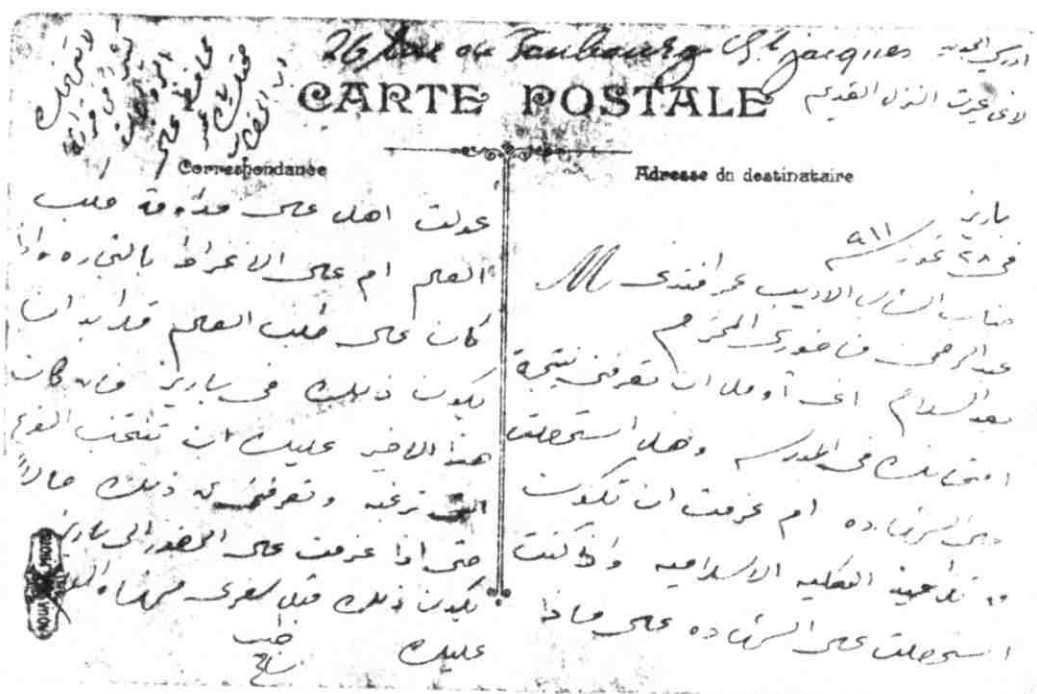 26 Rue du Faubourg St Jacques
لاني غيرت النزل القديم
CARTE POSTALE
Correspondance
Adresse du destinataire
باريز
في ٢٨ تموز سنة ٩١١
جناب الشاب الاديب عمر افندي
عبد الرحمن فاخوري المحترم
بعد السلام اني آومل ان تعرفني نتيجة
امتحانك في المدرسه وهل استحصلت
على الشهاده ام عزمت ان تكون
تلاميذ الكليه الاسلاميه واذا كنت
استحصلت على الشهاده على ماذا
عولت اهل على مداومة طلب
العلم ام على الانخراط بالتجاره واذا
كان على طلب العلم فلا بد ان
يكون ذلك في باريز فان كان
هذا الاخير عليك ان تنتخب الفرع
الذي ترغبه وتعرفني عن ذلك حالاً
حتى اذا عزمت على الحضور الى باريز
يكون ذلك قبل سفري منها والسلام
عليك